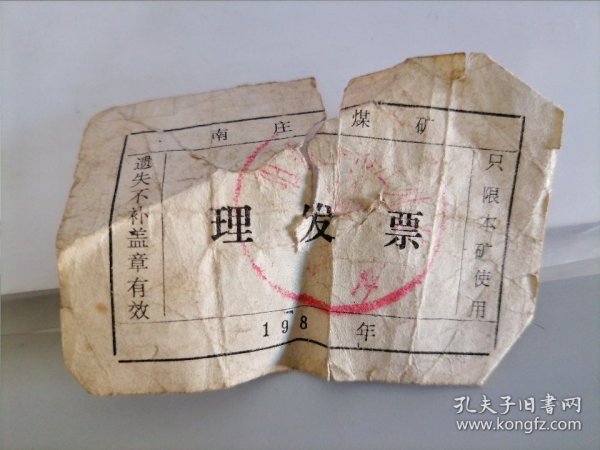 南庄煤矿
遗失不补盖章有效
理发票
只限本矿使用
198 年
孔夫子旧书网
www.kongfz.com